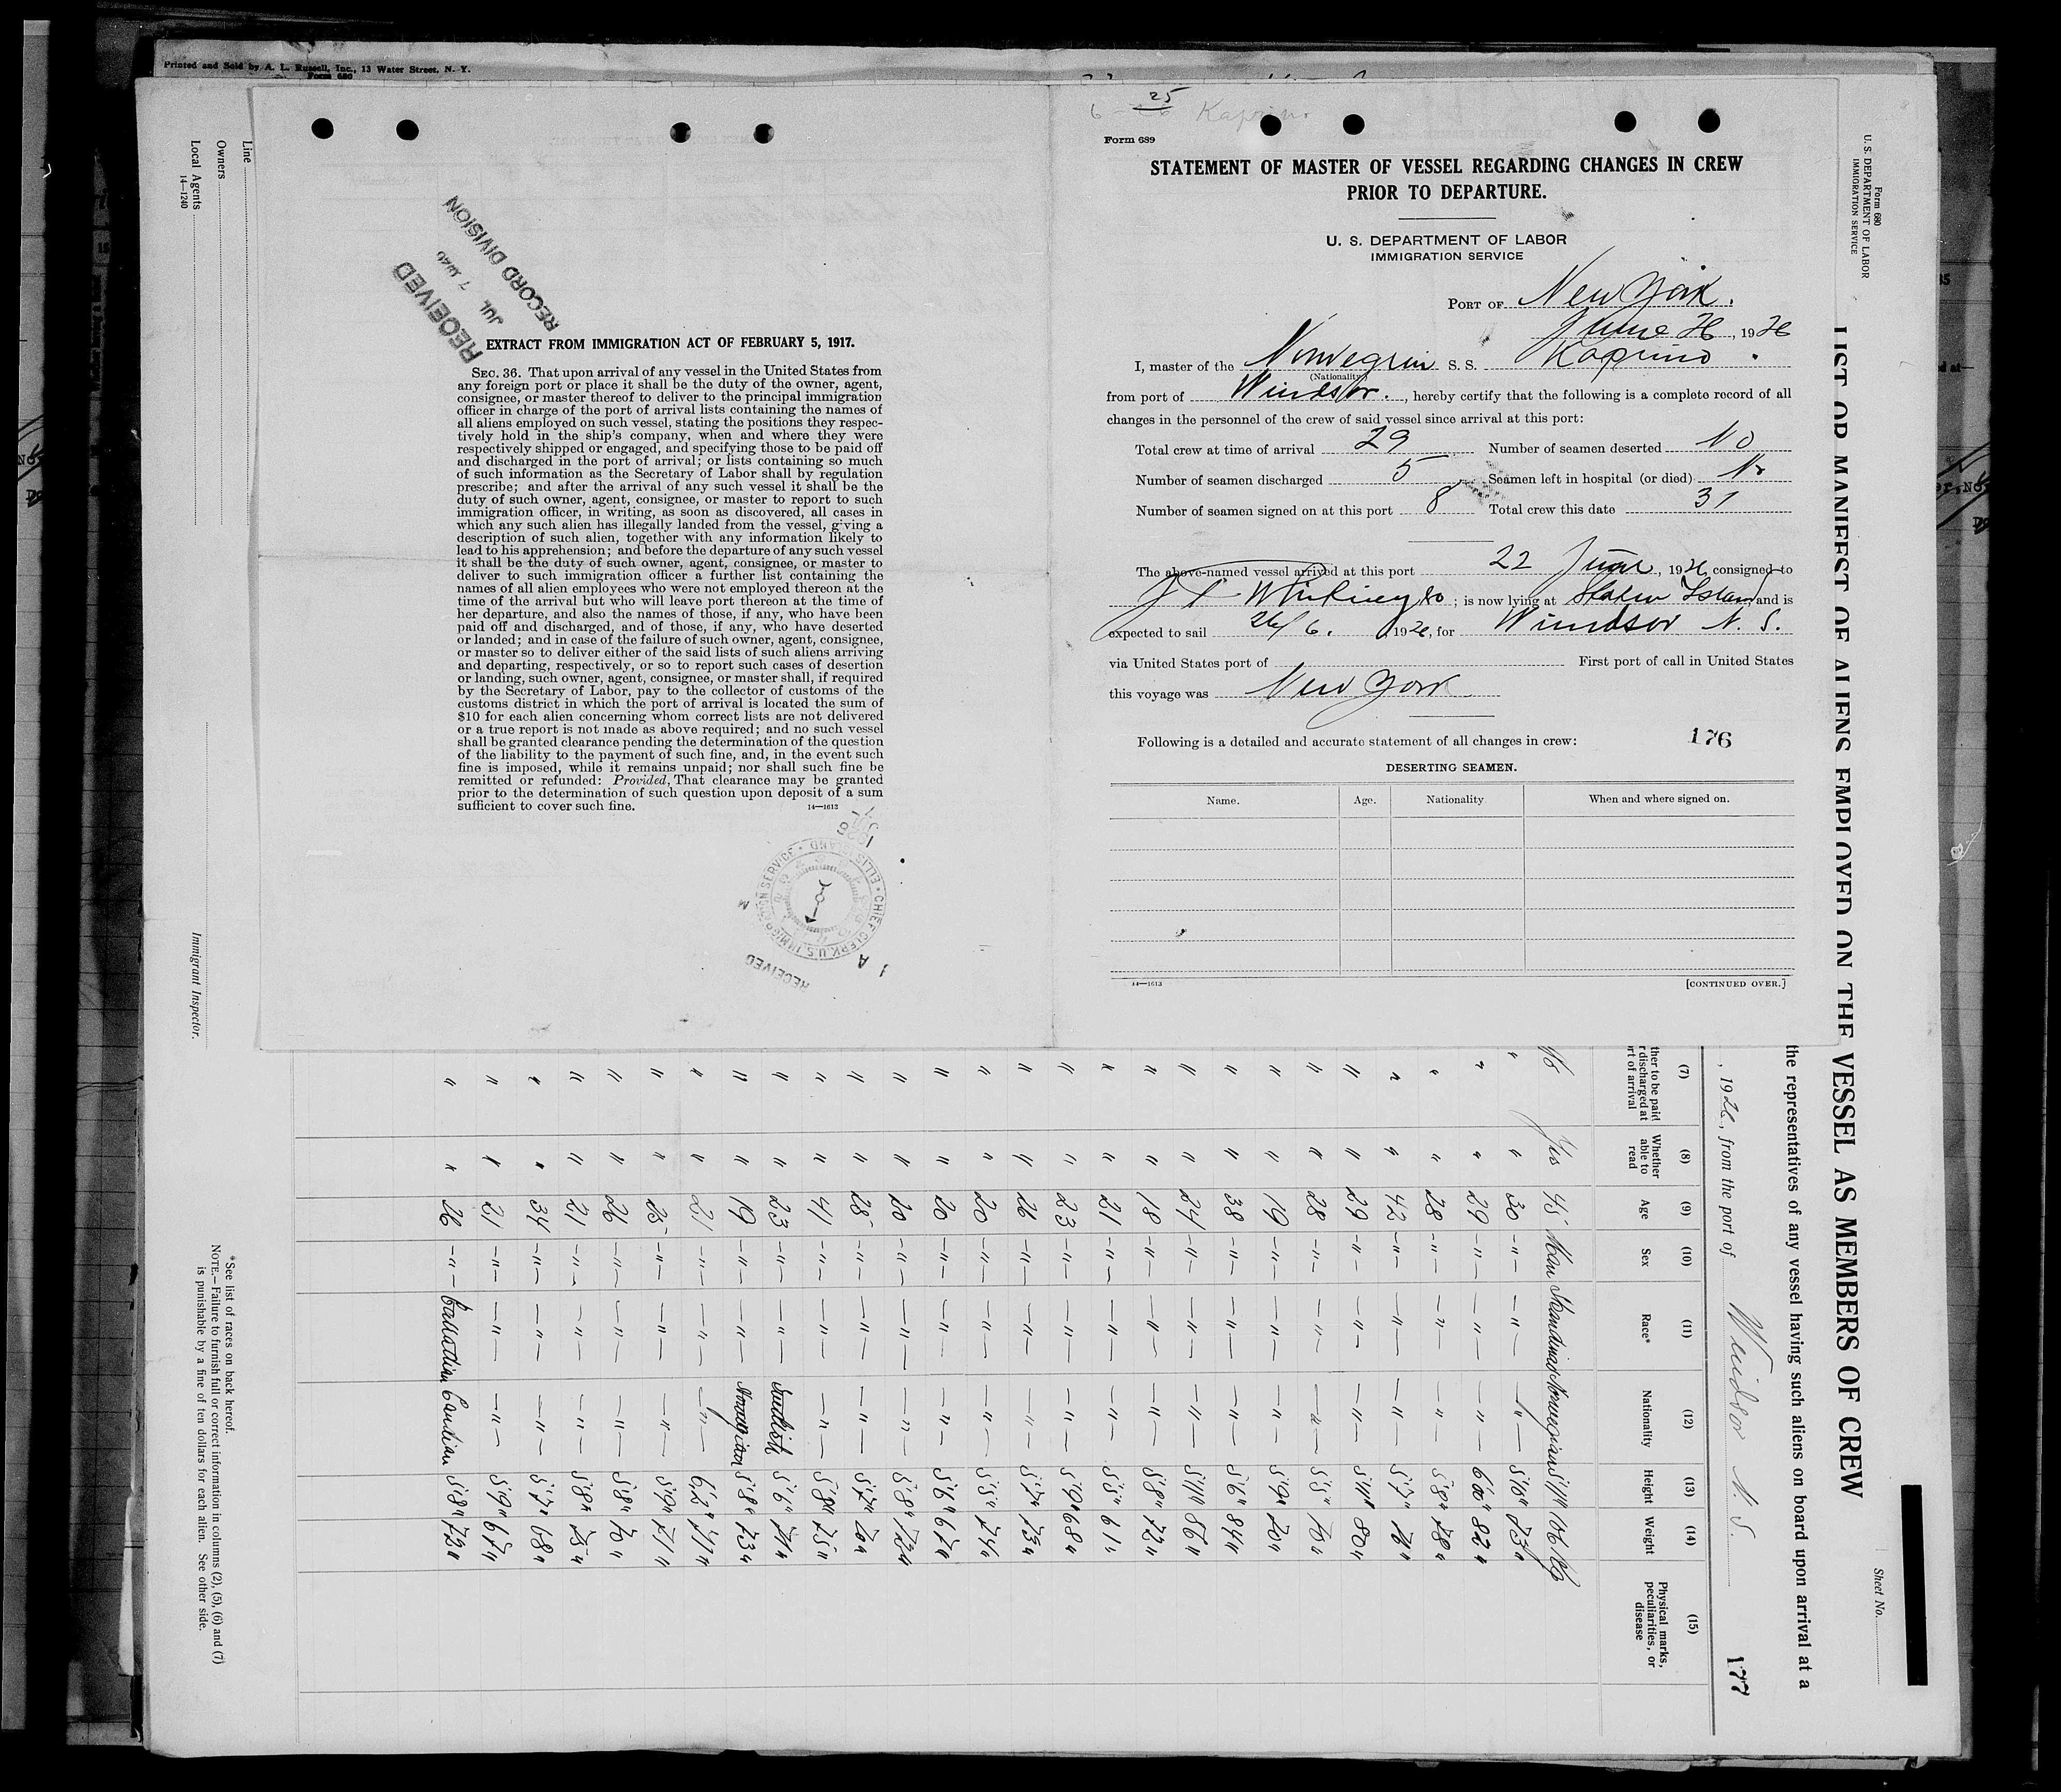 Printed and Sold by A. L. Russell, Inc., 13 Water Street, N. Y.
Form 680
Line
Owners
Local Agents
14—1240
Immigrant Inspector.
RECEIVED
JUL 7
RECORD DIVISION
EXTRACT FROM IMMIGRATION ACT OF FEBRUARY 5, 1917.
SEC. 36. That upon arrival of any vessel in the United States from
any foreign port or place it shall be the duty of the owner, agent,
consignee, or master thereof to deliver to the principal immigration
officer in charge of the port of arrival lists containing the names of
all aliens employed on such vessel, stating the positions they respec-
tively hold in the ship's company, when and where they were
respectively shipped or engaged, and specifying those to be paid off
and discharged in the port of arrival; or lists containing so much
of such information as the Secretary of Labor shall by regulation
prescribe; and after the arrival of any such vessel it shall be the
duty of such owner, agent, consignee, or master to report to such
immigration officer, in writing, as soon as discovered, all cases in
which any such alien has illegally landed from the vessel, giving a
description of such alien, together with any information likely to
lead to his apprehension; and before the departure of any such vessel
it shall be the duty of such owner, agent, consignee, or master to
deliver to such immigration officer a further list containing the
names of all alien employees who were not employed thereon at the
time of the arrival but who will leave port thereon at the time of
her departure, and also the names of those, if any, who have been
paid off and discharged, and of those, if any, who have deserted
or landed; and in case of the failure of such owner, agent, consignee,
or master so to deliver either of the said lists of such aliens arriving
and departing, respectively, or so to report such cases of desertion
or landing, such owner, agent, consignee, or master shall, if required
by the Secretary of Labor, pay to the collector of customs of the
customs district in which the port of arrival is located the sum of
$10 for each alien concerning whom correct lists are not delivered
or a true report is not made as above required; and no such vessel
shall be granted clearance pending the determination of the question
of the liability to the payment of such fine, and, in the event such
fine is imposed, while it remains unpaid; nor shall such fine be
remitted or refunded: Provided, That clearance may be granted
prior to the determination of such question upon deposit of a sum
sufficient to cover such fine. 14—1613
CHIEF CLERK, U.S. IMMIGRATION SERVICE • ELLIS ISLAND
RECEIVED
25
Form 689
STATEMENT OF MASTER OF VESSEL REGARDING CHANGES IN CREW
PRIOR TO DEPARTURE.
U. S. DEPARTMENT OF LABOR
IMMIGRATION SERVICE
PORT OF New York.
June 26, 1926
I, master of the Norwegian S. S. Kaprino.
(Nationality)
from port of Windsor., hereby certify that the following is a complete record of all
changes in the personnel of the crew of said vessel since arrival at this port:
Total crew at time of arrival 29 Number of seamen deserted No
Number of seamen discharged 5 Seamen left in hospital (or died) No
Number of seamen signed on at this port 8 Total crew this date 31
The above-named vessel arrived at this port 22 June, 1926, consigned to
J T Whitney Co; is now lying at Staten Island and is
expected to sail 26/6. 1926, for Windsor N. S.
via United States port of First port of call in United States
this voyage was New York
Following is a detailed and accurate statement of all changes in crew: 176
DESERTING SEAMEN.
Name. Age. Nationality When and where signed on.
14—1613 [CONTINUED OVER.]
Form 680
U. S. DEPARTMENT OF LABOR
IMMIGRATION SERVICE
Sheet No.
LIST OR MANIFEST OF ALIENS EMPLOYED ON THE VESSEL AS MEMBERS OF CREW
the representatives of any vessel having such aliens on board upon arrival at a
, 1926, from the port of Windsor N. S. 177
(7) (8) (9) (10) (11) (12) (13) (14) (15)
ther to be paid
r discharged at
rt of arrival
Whether
able to
read
Age
Sex
Race*
Nationality
Height
Weight
Physical marks,
peculiarities, or
disease
Yes 45 Man
" " 30 —"— —"— —"—
" " 29 —"— —"— —"— 6'00" 82"
" " 28 —"— —"— —"— 5'8" 78"
" " 42 —"— —"— —"— 5'7" 76"
" " 29 —"— —"— —"— 5'11" 80"
" " 28 —"— —"— —"— 5'5" 70"
" " 19 —"— —"— —"— 5'9" 70"
" " 38 —"— —"— —"— 5'6" 84"
" " 24 —"— —"— —"— 5'11" 86"
" " 18 —"— —"— —"— 5'8" 72"
" " 21 —"— —"— —"— 5'5" 61"
" " 23 —"— —"— —"— 5'9" 68"
" " 26 —"— —"— —"— 5'7" 73"
" " 20 —"— —"— —"— 5'5" 74"
" " 20 —"— —"— —"— 5'6" 67"
" " 20 —"— —"— —"— 5'8" 72"
" " 28 —"— —"— —"— 5'7" 70"
" " 41 —"— —"— —"— 5'8" 75"
" " 23 —"— —"— Swedish 5'6" 71"
" " 19 —"— —"— Norwegian 5'8" 73"
" " 21 —"— —"— —"— 6'2" 77"
" " 25 —"— —"— —"— 5'9" 71"
" " 26 —"— —"— —"— 5'8" 70"
" " 21 —"— —"— —"— 5'8" 75"
" " 34 —"— —"— —"— 5'7" 68"
" " 21 —"— —"— —"— 5'9" 67"
" " 26 —"— Canadian Canadian 5'8" 72"
*See list of races on back hereof.
NOTE.—Failure to furnish full or correct information in columns (2), (5), (6) and (7)
is punishable by a fine of ten dollars for each alien. See other side.